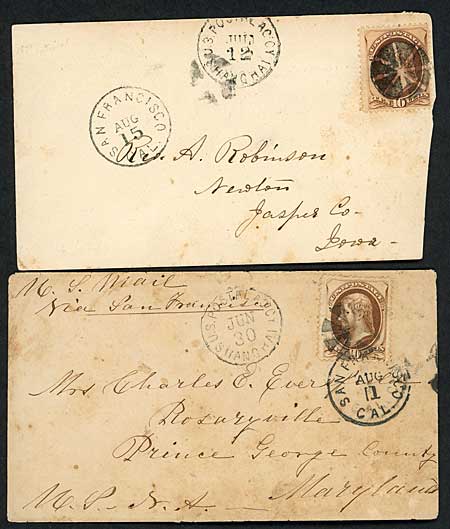 U.S. POSTAL AG'CY
JUL
12
SHANGHAI
SAN FRANCISCO
AUG
15
CAL.
10
Rev. A. Robinson
Newton
Jasper Co-
Iowa-
U. S. Mail
Via San Francisco
U.S. POSTAL AG'CY
JUN
30
SHANGHAI
SAN FRAN
AUG
11
CAL.
Mrs Charles C.
Rosaryville
Prince George County
Maryland
U. S. N. A.